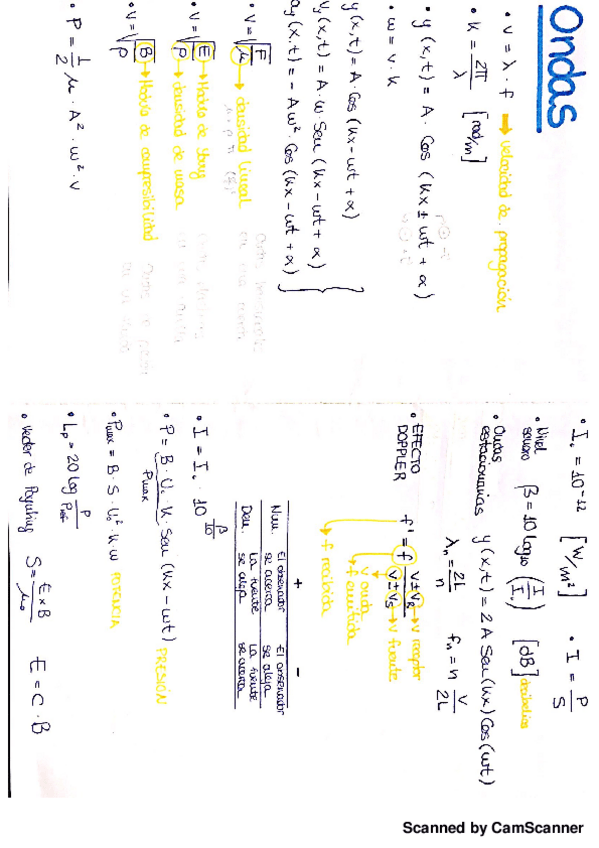 Ondas
• v = λ · f → velocidad de propagación
• K = 2π/λ [rad/m]
• y(x,t) = A · Cos (Kx ± wt + α)
• w = v · k
y(x,t) = A · Cos (Kx - wt + α)
Vy(x,t) = A · w · Sen (Kx - wt + α)
ay(x,t) = - A w² · Cos (Kx - wt + α)
• V = √(F/μ) → densidad lineal
• V = √(E/ρ) → Módulo de Young
→ densidad de masa
• V = √(B/ρ) → Módulo de compresibilidad
• P = 1/2 μ · A² · w² · v
• I₀ = 10⁻¹² [W/m²] • I = P/S
• Nivel sonoro β = 10 log₁₀ (I/I₀) [dB] decibelios
• Ondas estacionarias y(x,t) = 2A Sen(Kx) Cos(wt)
λn = 2L/n fn = n V/2L
• EFECTO DOPPLER f' = f (V ± VR)/(V ± VS) → V receptor
→ V fuente
V onda
f emitida
f recibida
+ -
Num. El observador se acerca El observador se aleja
Den. La fuente se aleja La fuente se acerca
• I = I₀ · 10^(β/10)
• P = B · U₀ · K · Sen (Kx - wt) PRESIÓN
Pmax
• Pmax = B · S · U₀² · K · w POTENCIA
• Lp = 20 log P/Pref
• Vector de Poynting S = (E × B)/μ₀ E = C · B
Scanned by CamScanner